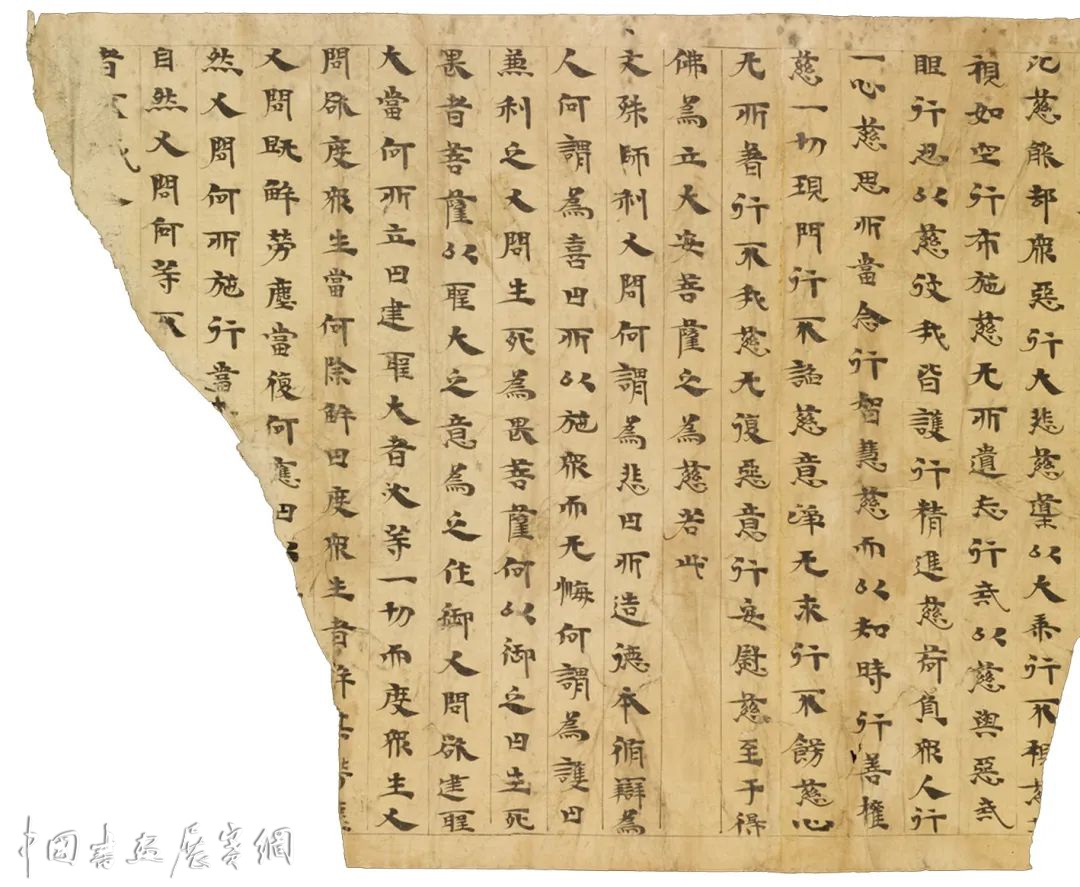 化慈能却衆惡行大悲慈導以大乘行不視慈
視如空行布施慈无所遺忘行戒以慈與惡戒
眼行忍以慈彼我皆護行精進慈荷負衆人行
一心慈思所當念行智慧慈而以知時行善權
慈一切現門行不諂慈意淨无求行不飾慈心
无所著行不我慈无復惡意行安慰慈至于得
佛為立大安菩薩之為慈若此
文殊師利又問何謂為悲曰所造德本脩辯為
人何謂為喜曰所以施衆而无悔何謂為護曰
兼利之又問生死為畏菩薩何以御之曰生死
畏者菩薩以聖大之意為之住御又問欲建聖
大當何所立曰建聖大者必等一切而度衆生又
問欲度衆生當何除解曰度衆生者解其勞塵
又問既解勞塵當復何應曰以
然又問何所施行當
自然又問何等不
者
中國書畫展賽網